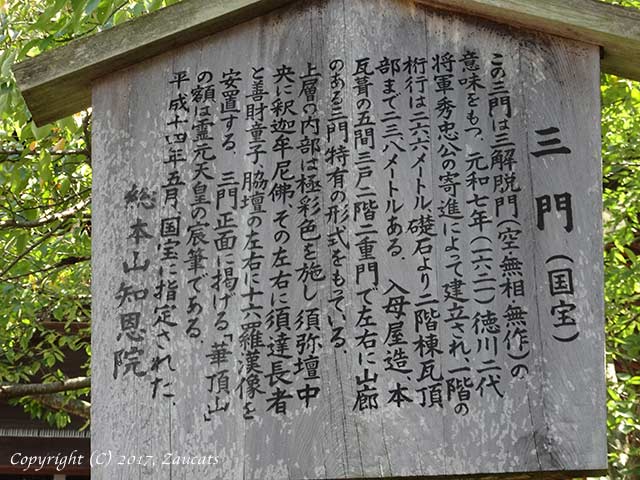 三門（国宝）
この三門は三解脱門（空・無相・無作）の
意味をもつ。元和七年（一六二一）徳川二代
将軍秀忠公の寄進によって建立され、一階の
桁行は二六・六メートル、礎石より二階棟瓦頂
部まで二三・八メートルある。入母屋造、本
瓦葺の五間三戸二階二重門で左右に山廊
のある三門特有の形式をもている。
上層の内部は極彩色を施し須弥壇中
央に釈迦牟尼佛、その左右に須達長者
と善財童子、脇壇の左右に十六羅漢像を
安置する。三門正面に掲げる「華頂山」
の額は霊元天皇の宸筆である。
平成十四年五月、国宝に指定された。
総本山知恩院
Copyright (C) 2017, Zaucats